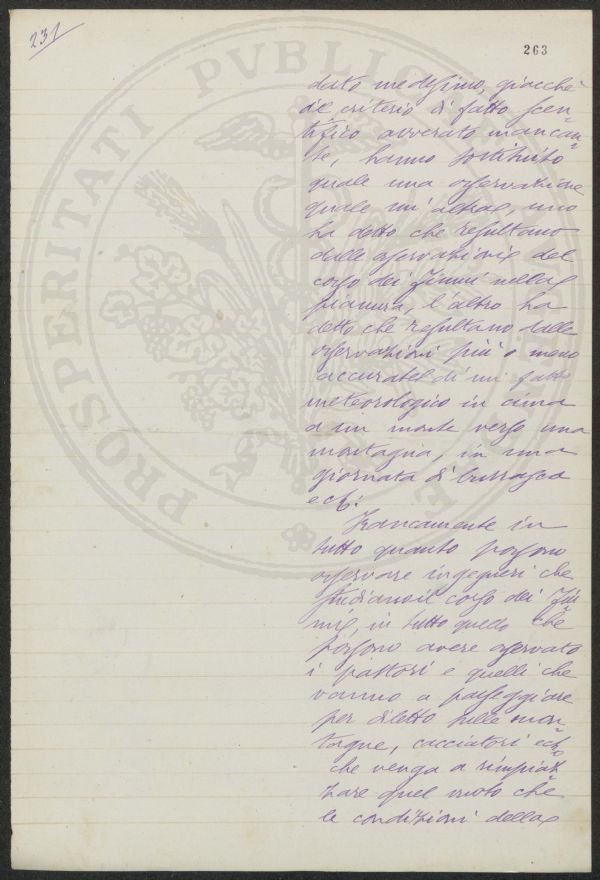 231
263
dato medesimo, giacchè
il criterio di fatto scen-
tifico avverato mancan-
te, hanno sostituito
quale una osservazione
quale un'altra, uno
ha detto che resultano
dalle osservazioni del
corso dei fiumi nella
pianura, l'altro ha
detto che resultano dalle
osservazioni più o meno
accurate di un fatto
meteorologico in cima
a un monte verso una
montagna, in una
giornata di burrasca
ecc:
Francamente in
tutto quanto possono
osservare ingegneri che
studiano il corso dei fiu-
mi, in tutto quello che
possono avere osservato
i pastori e quelli che
vanno a passeggiare
per diletto nelle mon-
tagne, cacciatori ecc.
che venga a rimpiaz-
zare quel vuoto che
le condizioni della
PROSPERITATI PVBLICAE